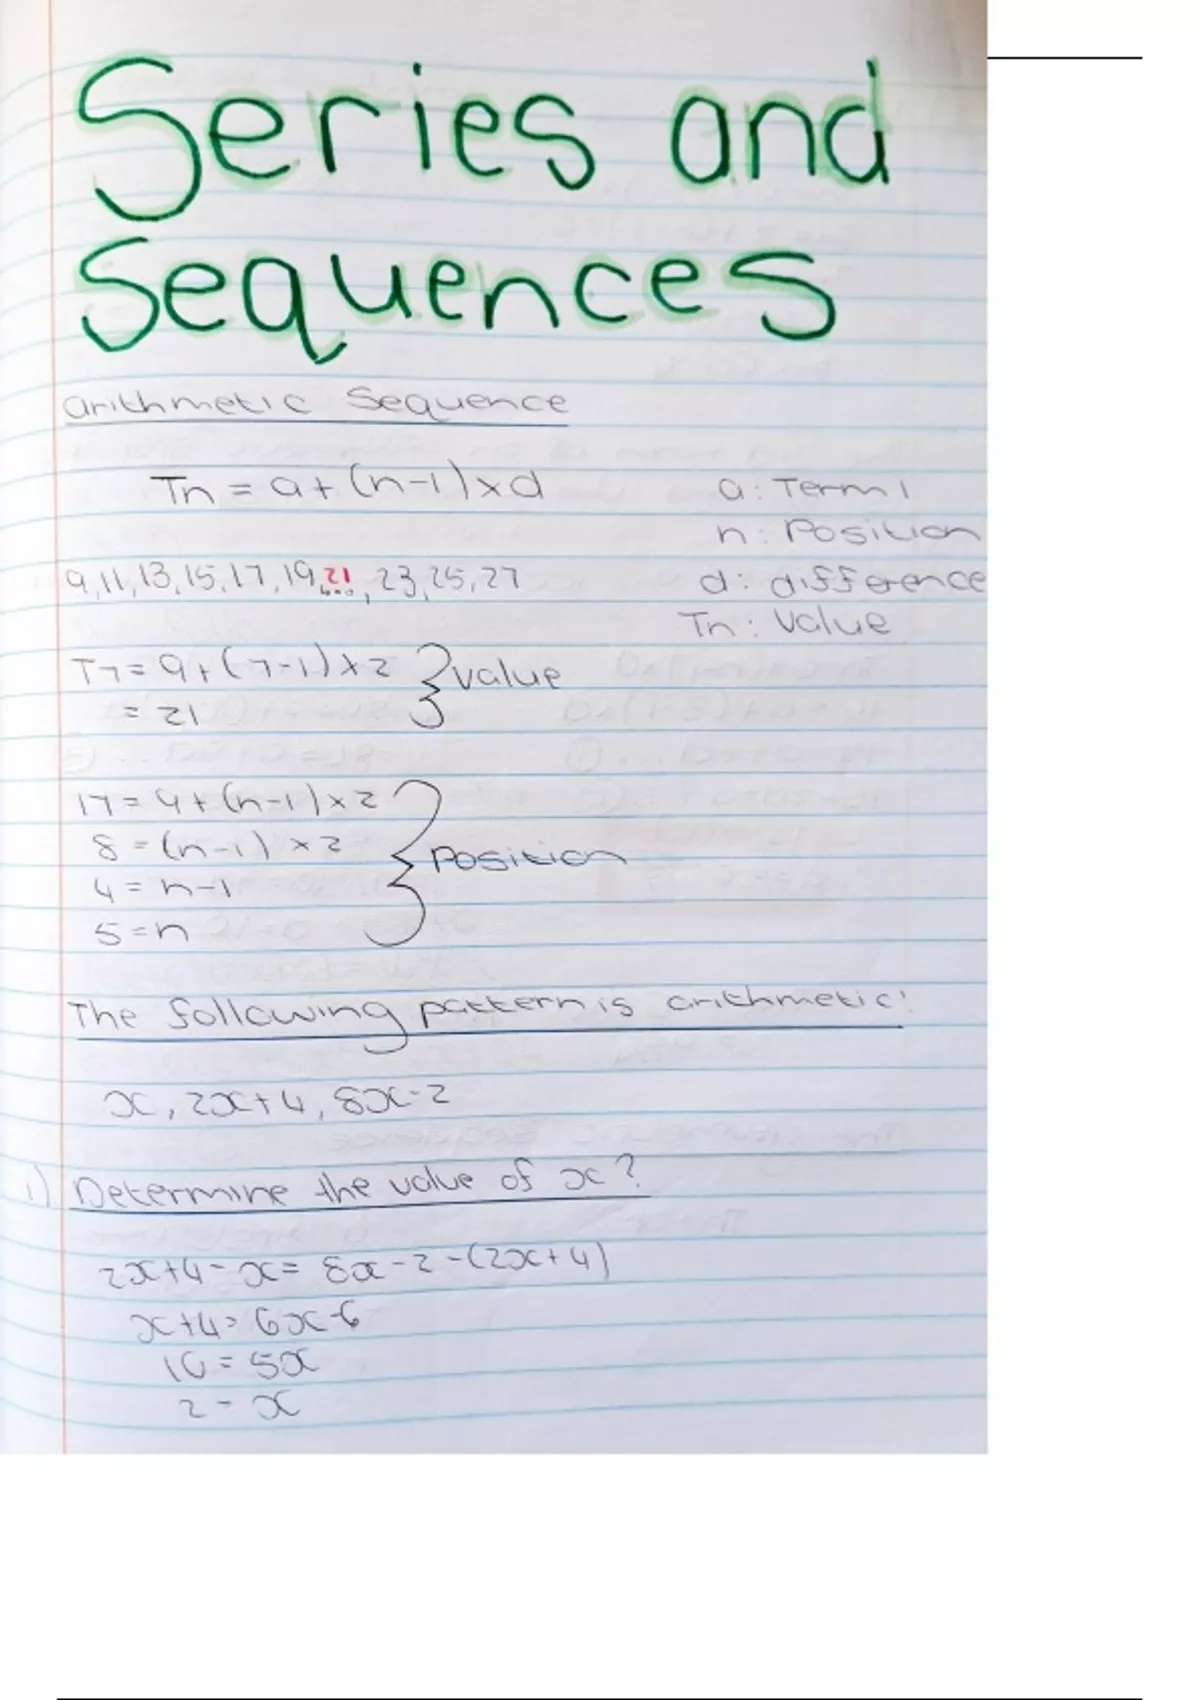 Series and
Sequences
Arithmetic Sequence
Tn = a + (n-1) x d
a: Term 1
n: Position
9, 11, 13, 15, 17, 19, 21, 23, 25, 27
d: difference
Tn: Value
T7 = 9 + (7-1) x 2 } value
= 21
17 = 9 + (n-1) x 2
8 = (n-1) x 2 } Position
4 = n-1
5 = n
The following pattern is arithmetic:
x, 2x+4, 8x-2
1) Determine the value of x?
2x+4-x = 8x-2-(2x+4)
x+4 = 6x-6
10 = 5x
2 = x